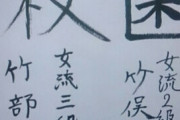 女流2級
竹俣
女流三級
竹部